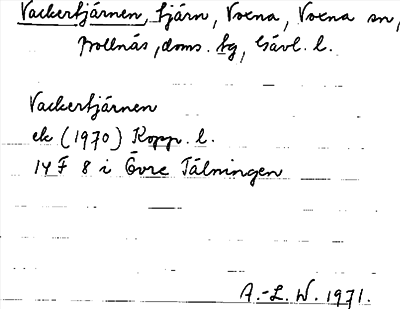 Vackertjärnen, tjärn, Voxna, Voxna sn,
Bollnäs, doms. tg, Gävl. l.
Vackertjärnen
ek (1970) Kopp. l.
14 F 8 i Övre Tälningen
A.-L. W. 1971.